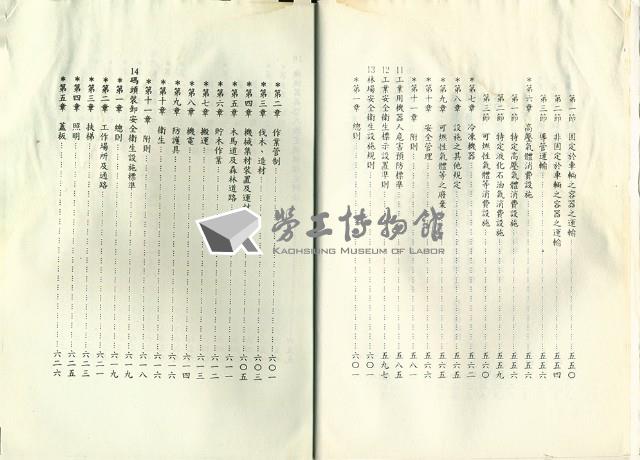 第一節 固定於車輛之容器之運輸……五五〇
第二節 非固定於車輛之容器之運輸……五五四
第三節 導管運輸……五五五
*第六章 高壓氣體消費設施……五五五
第一節 特定高壓氣體消費設施……五五五
第二節 特定液化石油氣消費設施……五五九
第三節 可燃性氣體等消費設施……五六〇
*第七章 冷凍機器……五六〇
*第八章 設施之其他規定……五六二
*第九章 可燃性氣體等之廢棄……五六五
*第十章 安全管理……五六六
*第十一章 附則……五八四
11工業用機器人危害預防標準……五八五
12工業安全衛生標示設置準則……五九七
13林場安全衛生設施規則……六〇一
*第一章 總則……六〇一
*第二章 作業管制……六〇一
*第三章 伐木、造材……六〇三
*第四章 機械集材裝置及運材……六〇五
*第五章 木馬道及森林道路……六一一
*第六章 貯木作業……六一二
*第七章 搬運……六一三
*第八章 機電……六一四
*第九章 防護具……六一六
*第十章 衛生……六一六
*第十一章 附則……六一八
14碼頭裝卸安全衛生設施標準……六一九
*第一章 總則……六一九
*第二章 工作場所及通路……六二一
*第三章 扶梯……六二三
*第四章 照明……六二五
*第五章 蓋板……六二六
勞工博物館
KAOHSIUNG MUSEUM OF LABOR